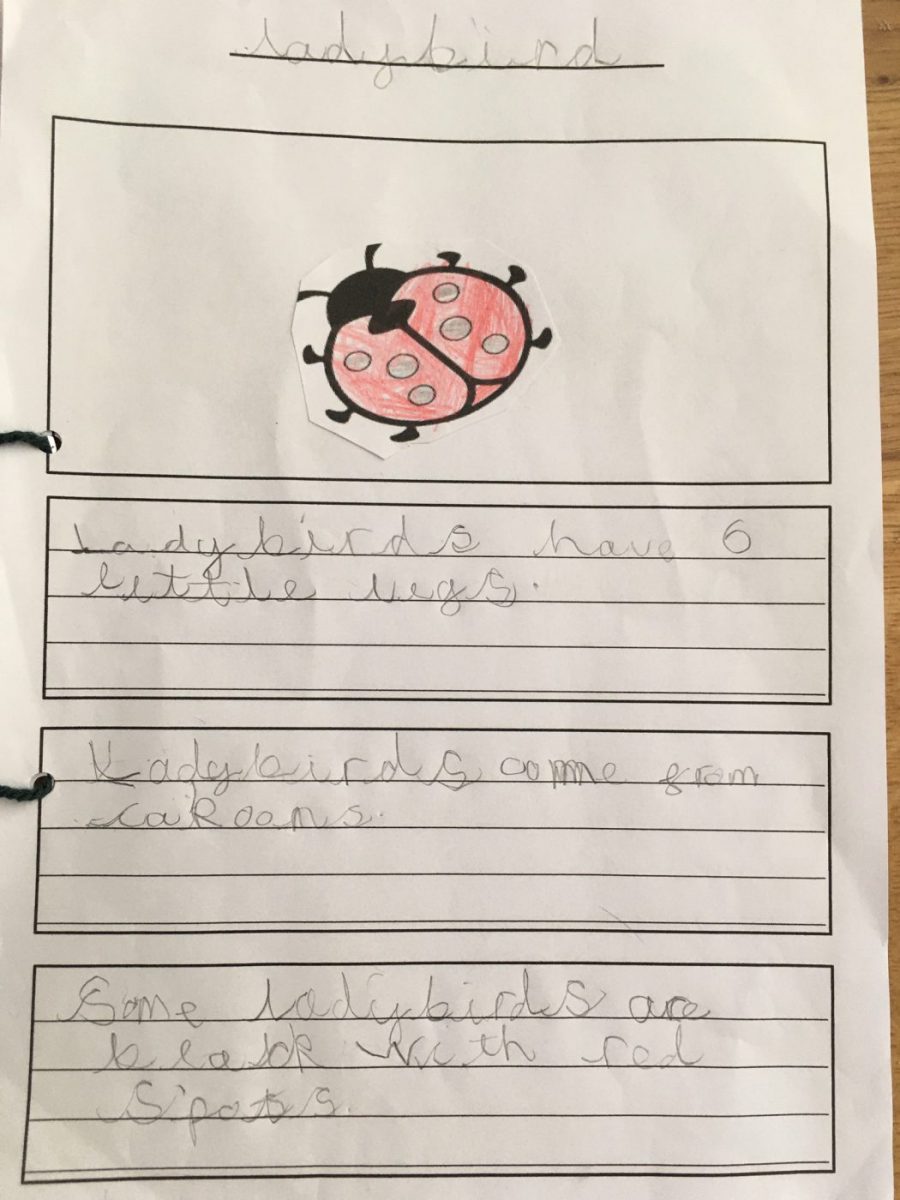 ladybird
Ladybirds have 6
little legs.
Ladybirds come from
cakoons.
Some ladybirds are
black with red
Spots.